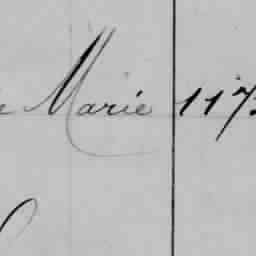 Marie 117